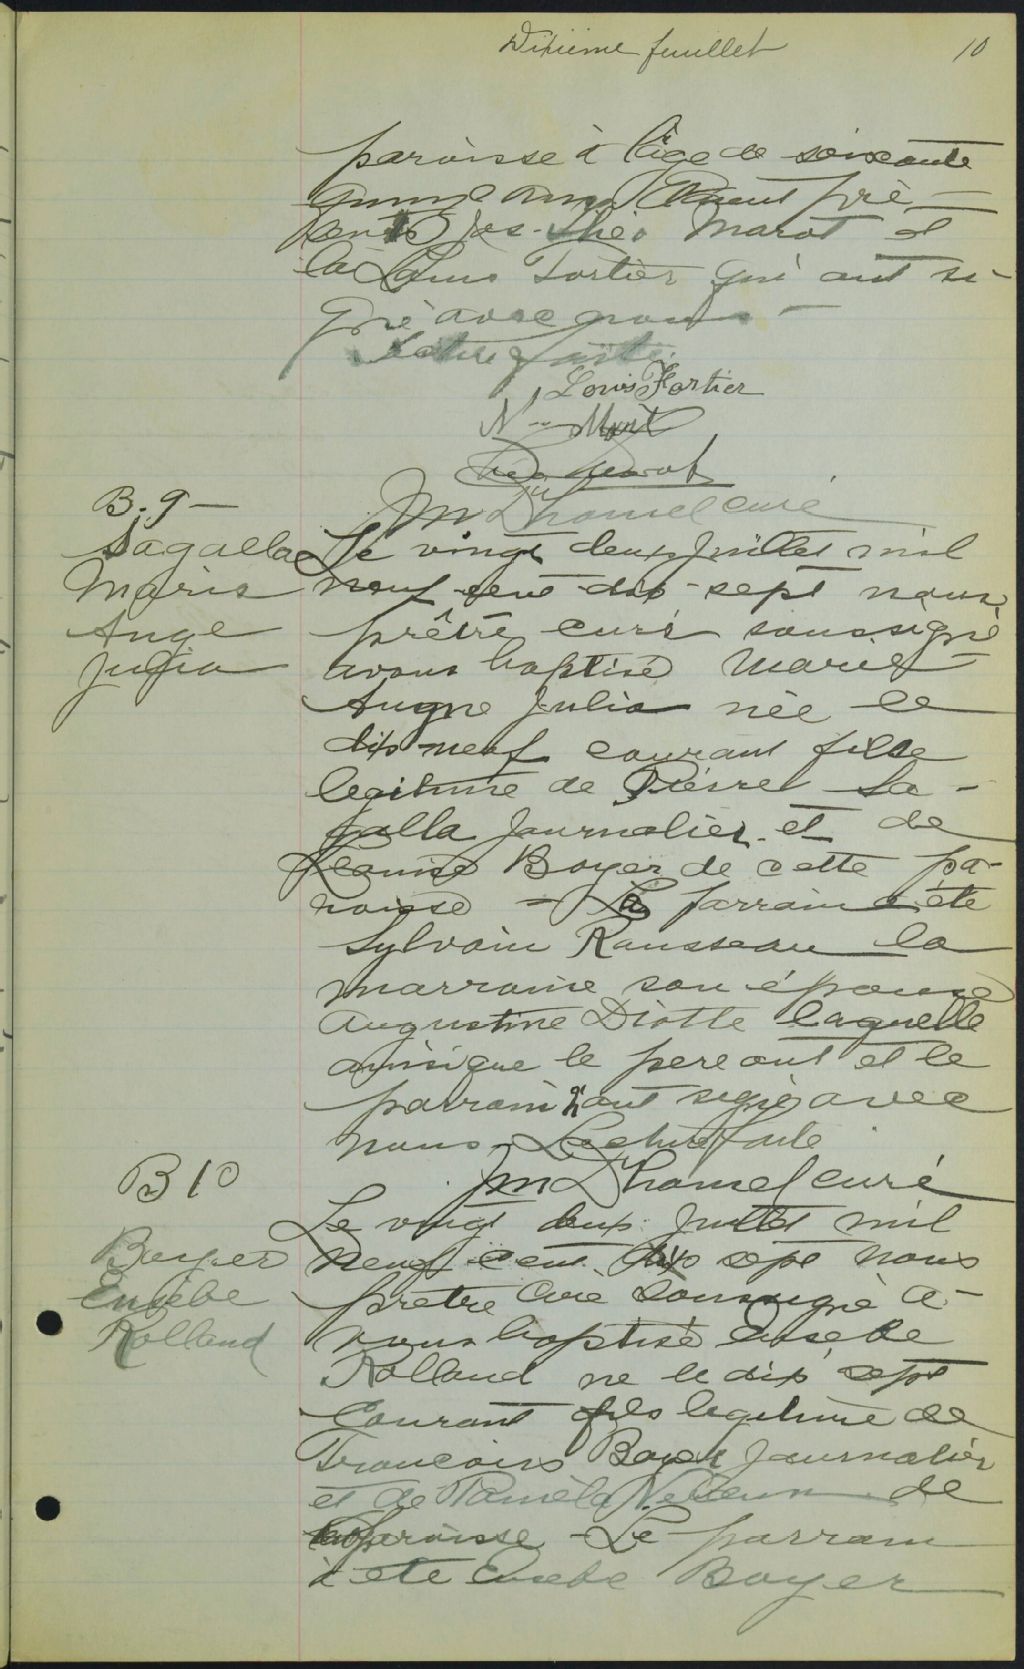 Dixième feuillet 10
paroisse à l'âge de soixante
quinze ans Etaient pré-
sents Jos. Théo Marot et
Louis Fortier qui ont si-
gné avec nous -
Lecture faite
Louis Fortier
N
Théo Marot
Jm Duhamel curé
B. 9 -
Sagalla
Marie
Ange
Julia
Le vingt deux Juillet mil
neuf cent dix-sept nous
prêtre curé soussigné
avons baptisé Marie
Ange Julia née le
dix-neuf courant fille
legitime de Pierre Sa-
galla Journalier et de
Boyer de cette pa-
roisse - Le parrain a été
Sylvain Rousseau la
marraine son épouse
Augustine Diotte laquelle
ainsi que le pere ont et le
parrain ont signé avec
nous Lecture faite
Jm Duhamel curé
B 10
Boyer
Eusèbe
Rolland
Le vingt deux Juillet mil
neuf cent dix sept nous
prêtre curé soussigné a-
vons baptisé Eusèbe
Rolland né le dix sept
Courant fils legitime de
Francois Boyer Journalier
et de Paméla de
paroisse - Le parrain
a été Eusèbe Boyer